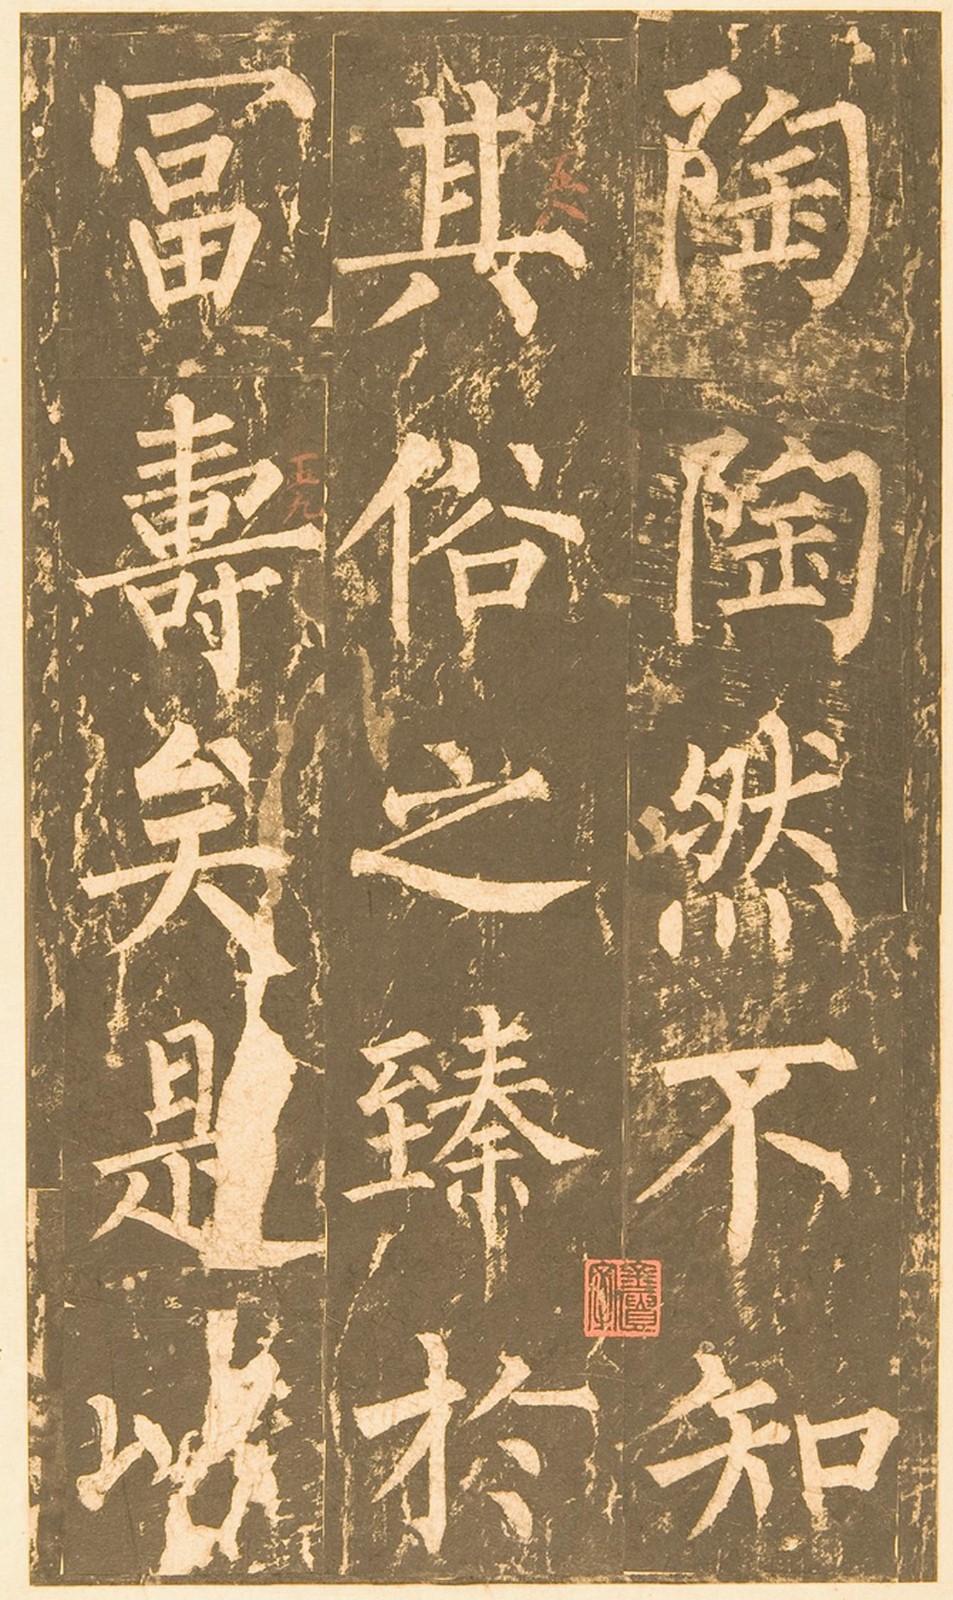 陶陶然不知
其俗之臻於
冨壽矣是以
正八
正九